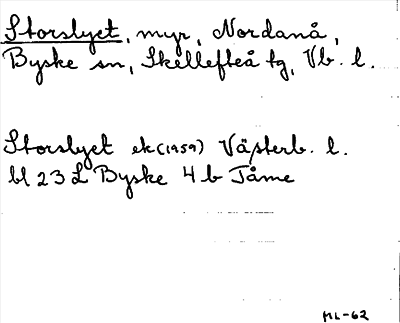 Storslyet, myr, Nordanå,
Byske sn, Skellefteå tg, Vb. l.
Storslyet ek (1959) Västerb. l.
bl 23 L Byske 4 b Tåme
ML-62